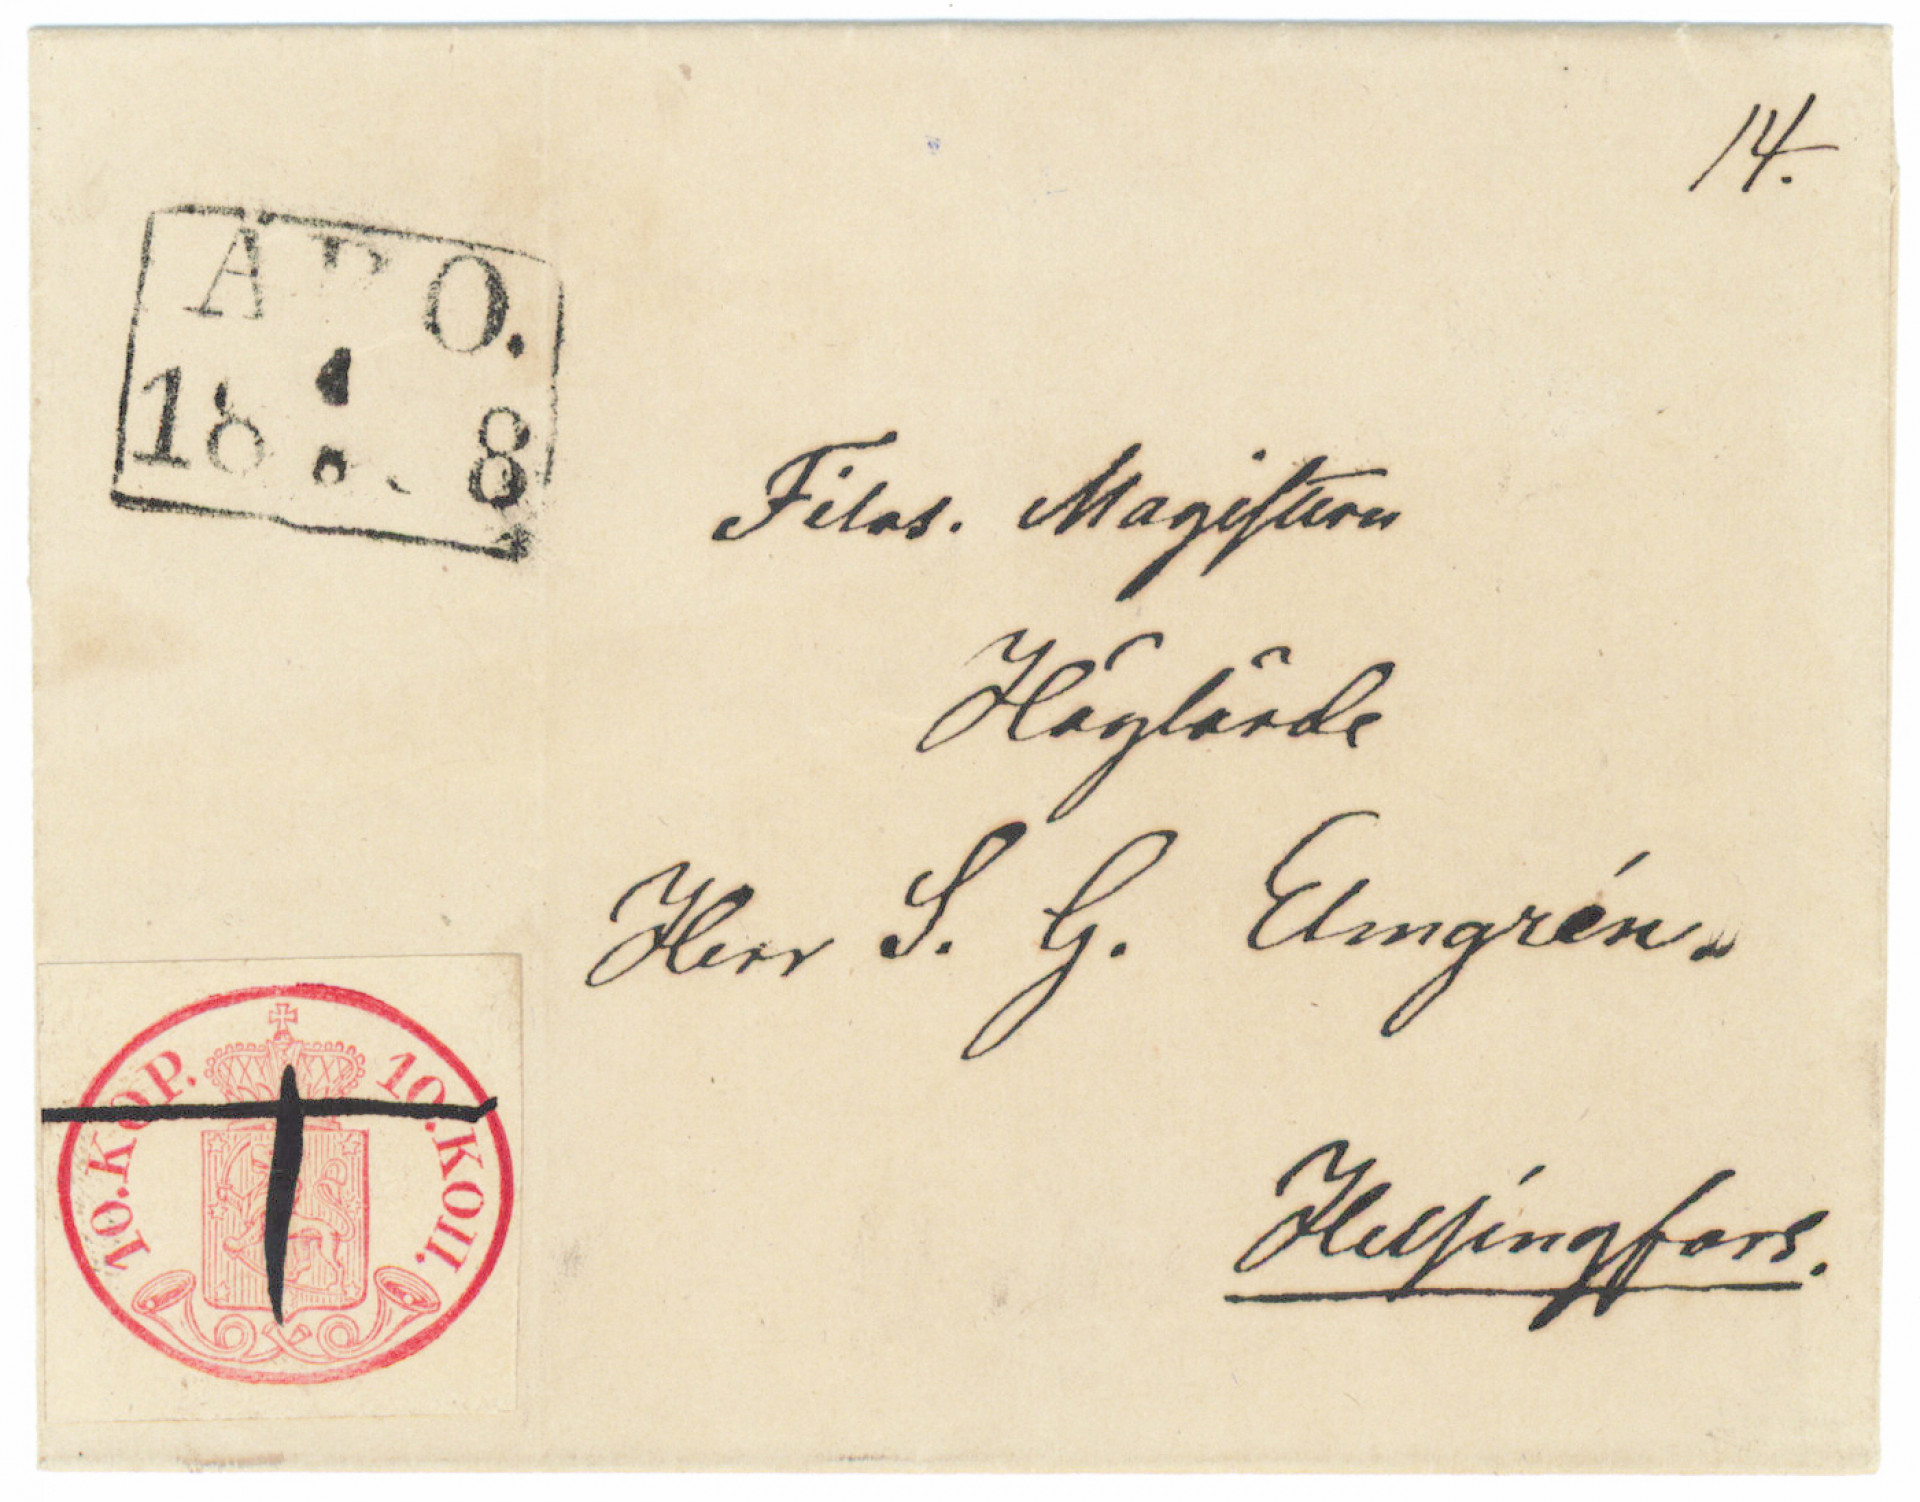 14.
ÅBO.
18 8
Filos. Magistern
Höglärde
Herr S. G. Elmgrén.
Helsingfors.
10. KOP. 10. КОП.